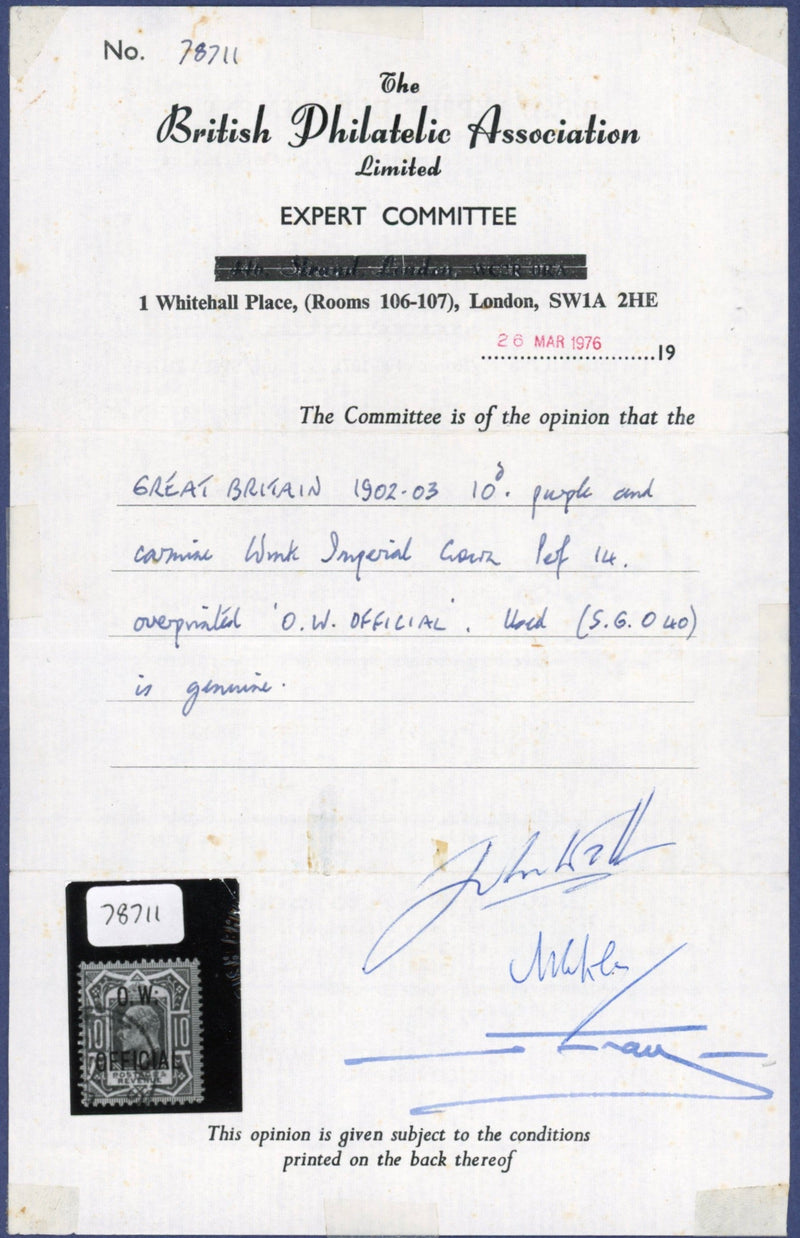 No. 78711
The
British Philatelic Association
Limited
EXPERT COMMITTEE
Strand, London, WC2R 0RA
1 Whitehall Place, (Rooms 106-107), London, SW1A 2HE
26 MAR 1976
19
The Committee is of the opinion that the
GREAT BRITAIN 1902-03 10d. purple and
carmine Wmk Imperial Crown Perf 14.
overprinted 'O.W. OFFICIAL'. Used (S.G. O40)
is genuine.
78711
O.W.
10 10
OFFICIAL
POSTAGE &
REVENUE
This opinion is given subject to the conditions
printed on the back thereof